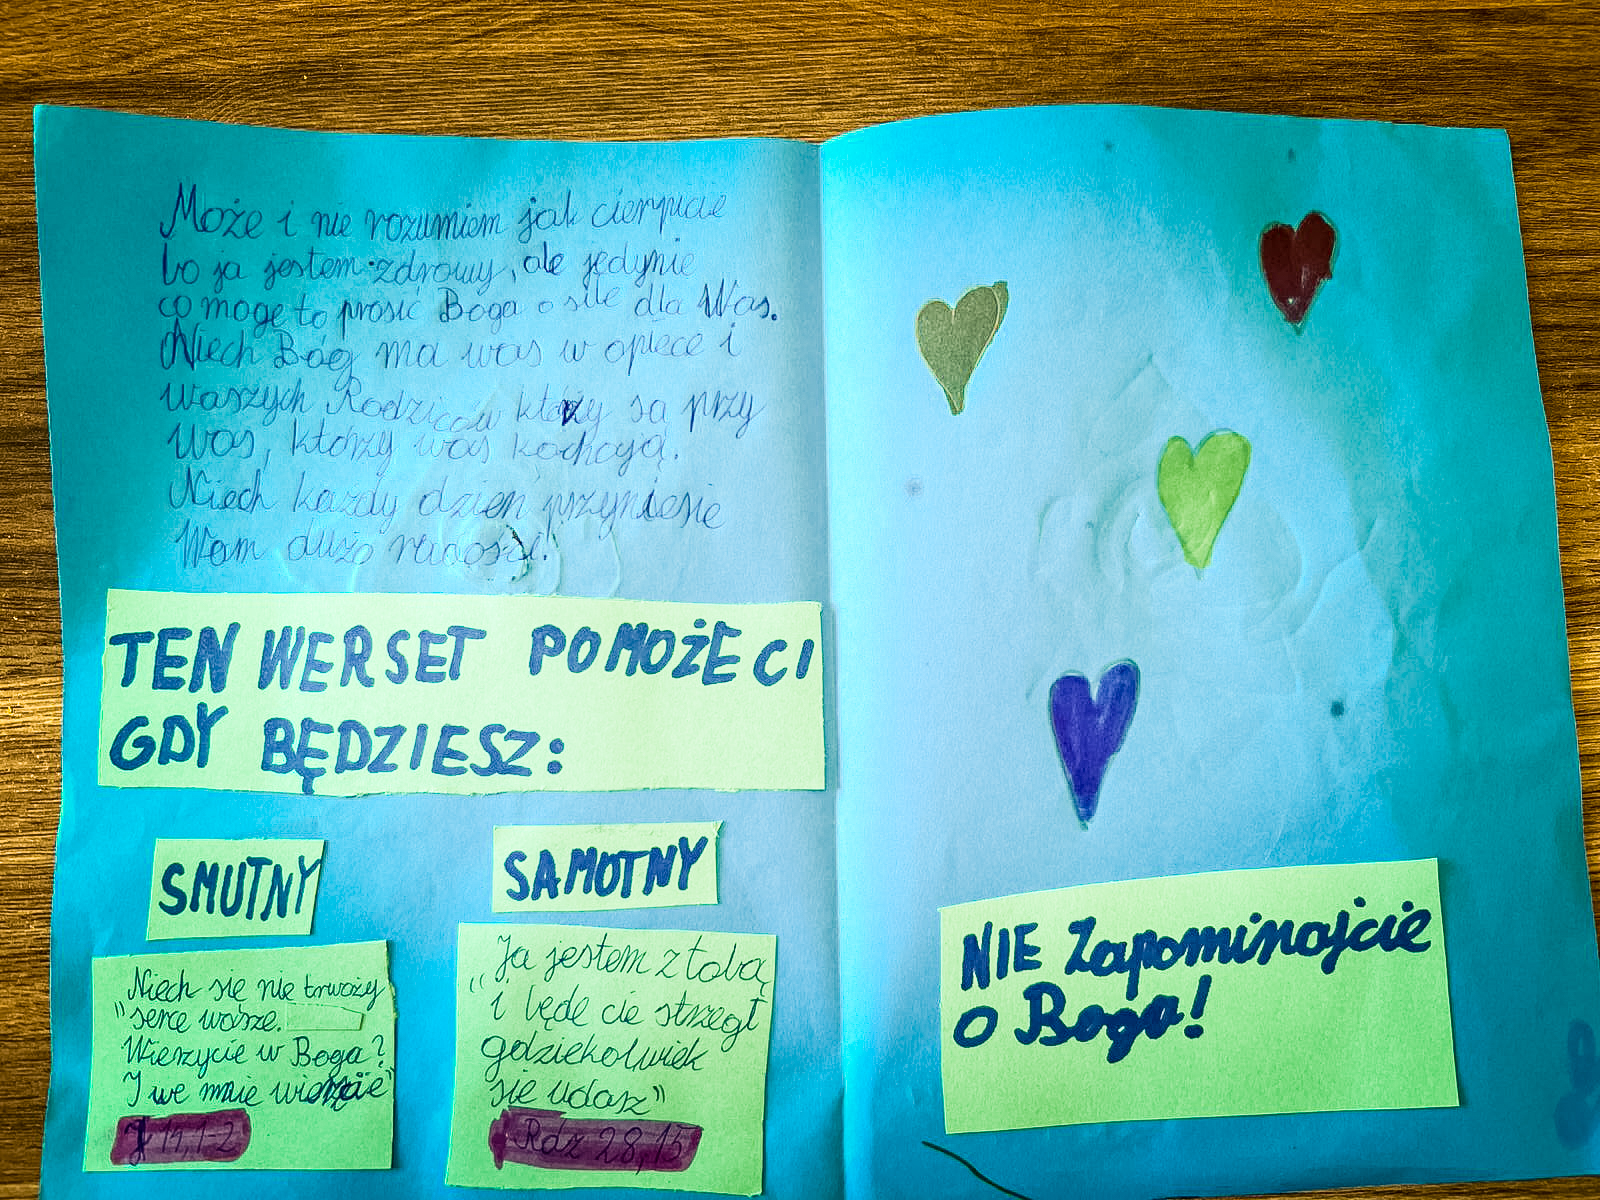 Może i nie rozumiem jak cierpicie
bo ja jestem zdrowy, ale jedynie
co moge to prosić Boga o siłe dla Was.
Niech Bóg ma was w opiece i
waszych Rodziców którzy są przy
Was, którzy was kochają.
Niech każdy dzień przyniesie
Wam dużo radości.
TEN WERSET POMOŻE CI
GDY BĘDZIESZ:
SMUTNY
Niech się nie trwoży
"serce wasze.
Wierzycie w Boga?
I we mnie wierzcie"
J 14,1-2
SAMOTNY
„Ja jestem z tobą
i będe cie strzegł
gdziekolwiek
się udasz"
Rdz 28,15
NIE Zapominajcie
o Boga!